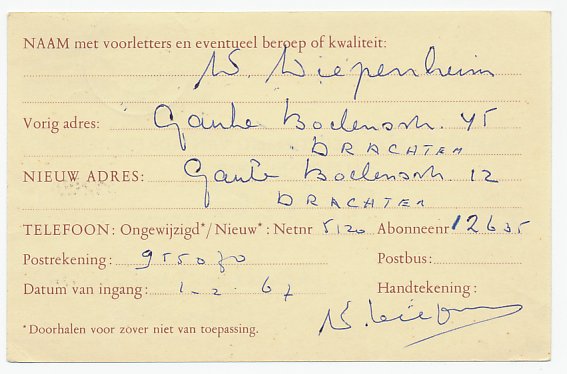 NAAM met voorletters en eventueel beroep of kwaliteit:
W. Diepenheim
Vorig adres: Gauke Boelensstr. 45
DRACHTEN
NIEUW ADRES: Gauke Boelensstr. 12
DRACHTEN
TELEFOON: Ongewijzigd*/Nieuw*: Netnr 5120 Abonneenr 12635
Postrekening: 955070 Postbus:
Datum van ingang: 1-2-67 Handtekening:
*Doorhalen voor zover niet van toepassing.